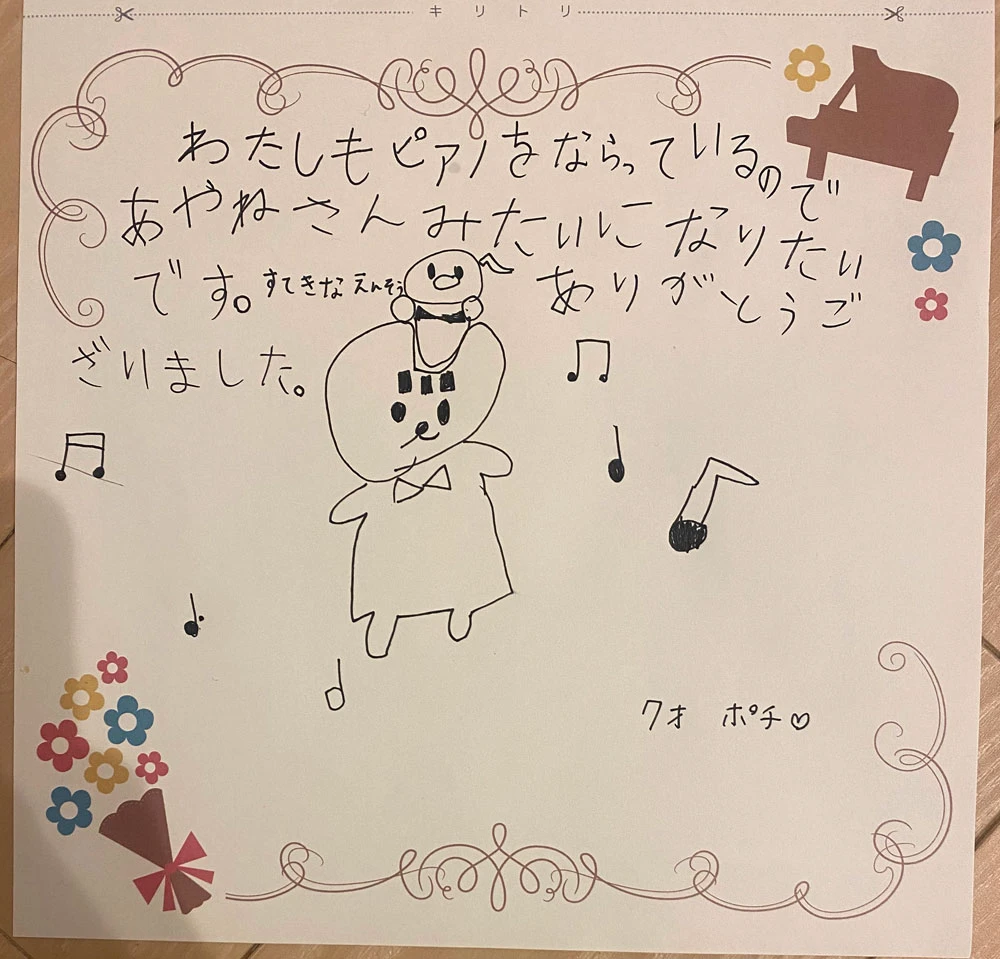 キリトリ
わたしもピアノをならっているので
あやねさんみたいになりたい
です。すてきなえんそう ありがとうご
ざいました。
7才 ポチ♡